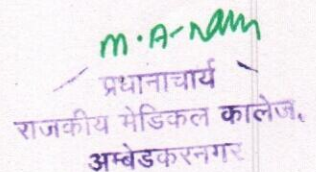 प्रधानाचार्य
राजकीय मेडिकल कालेज,
अम्बेडकरनगर